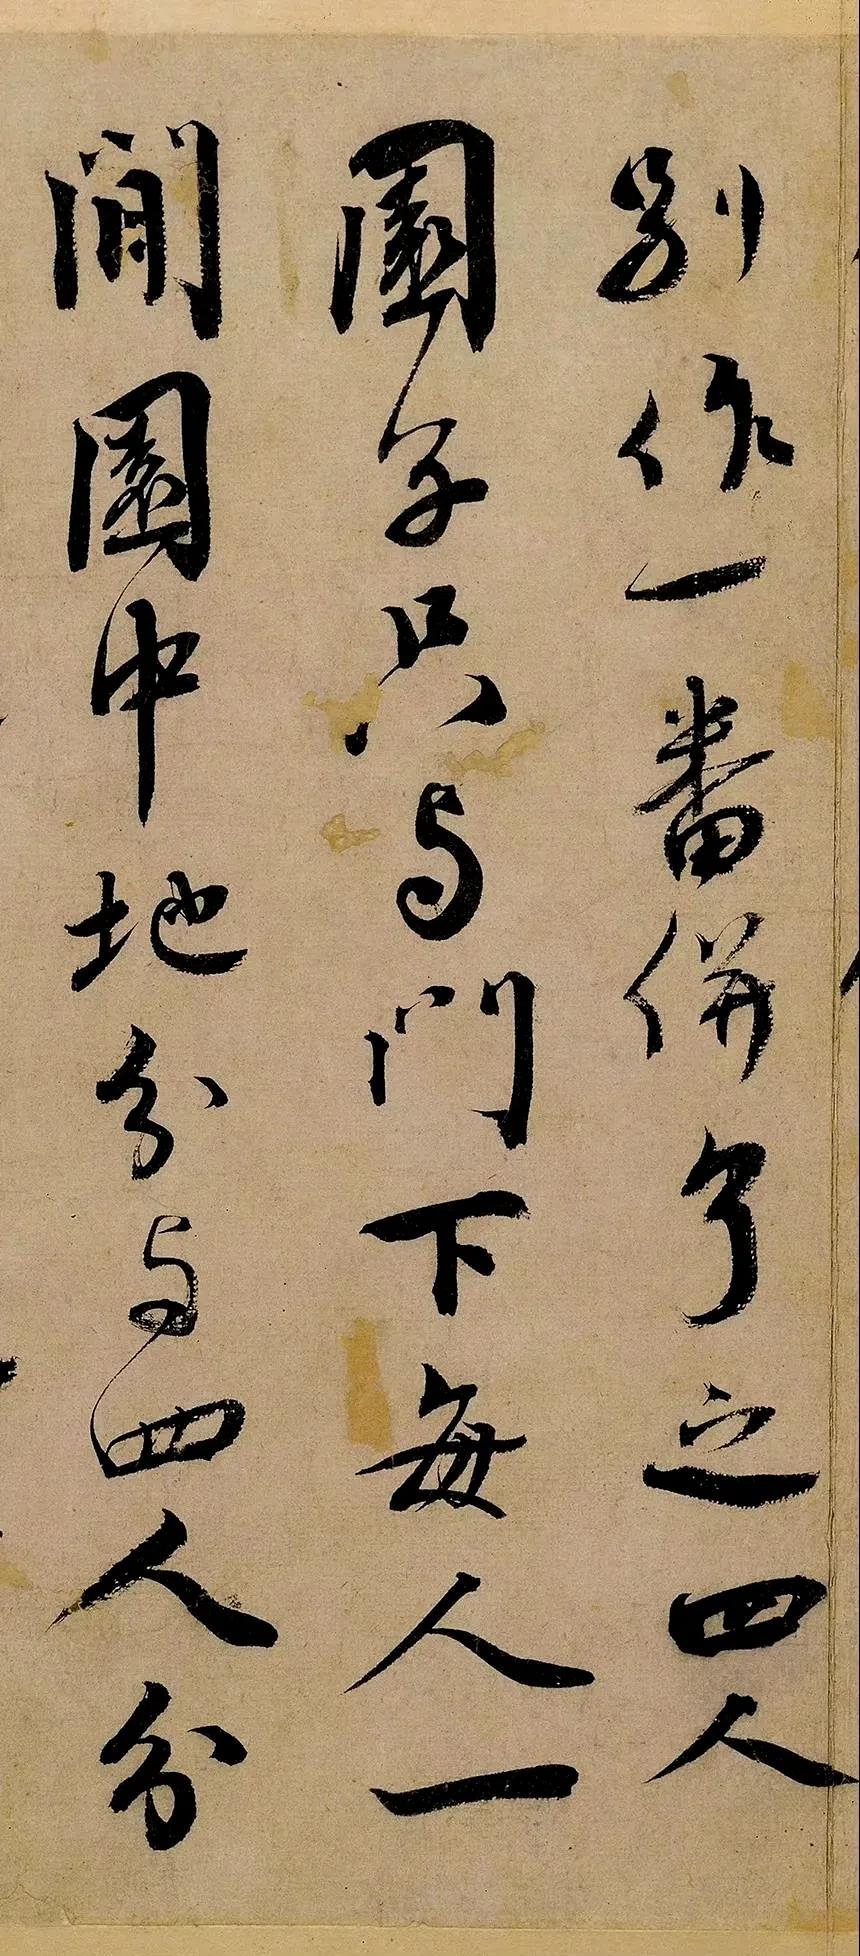 别作一番併予之四人
園子只与門下每人一
間園中地分与四人分